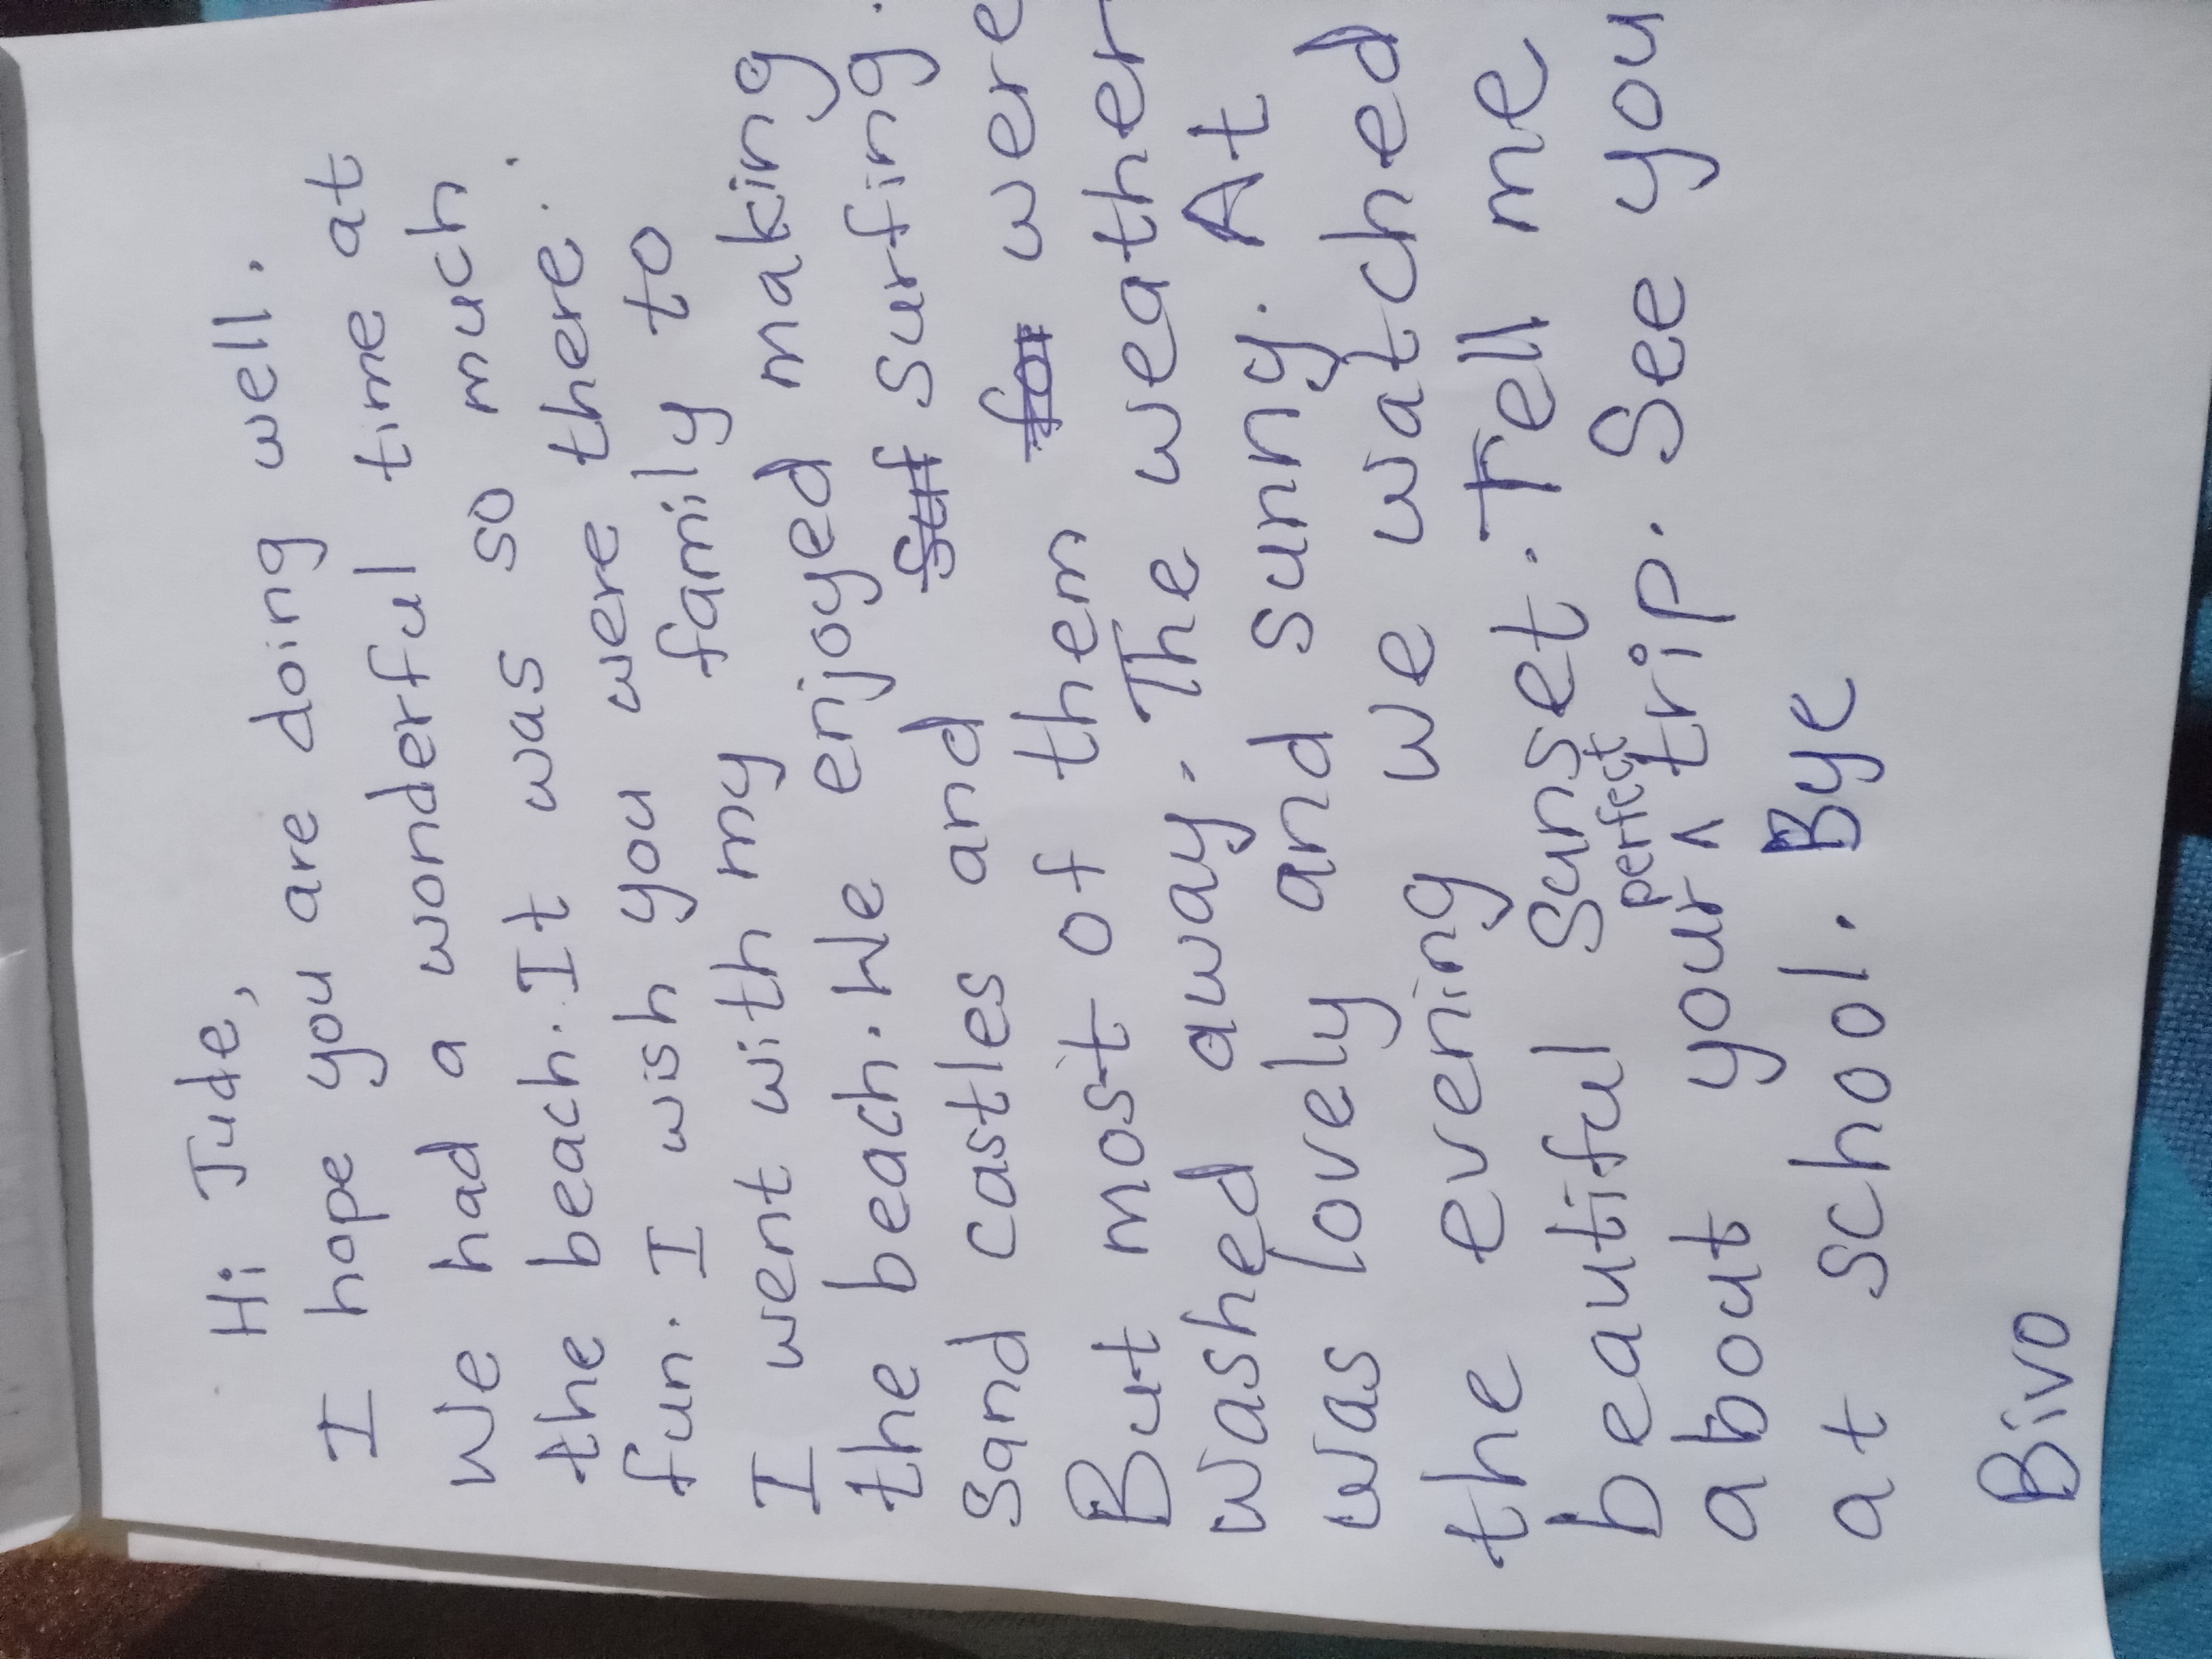 Hi Jude,
I hope you are doing well.
We had a wonderful time at
the beach. It was so much
fun. I wish you were there.
I went with my family to
the beach. We enjoyed making
Sand castles and Surf surfing.
But most of them for were
washed away. The weather
was lovely and sunny. At
the evening we watched
beautiful sunset. Tell me
about your perfect trip. See you
at school. Bye
Bivo